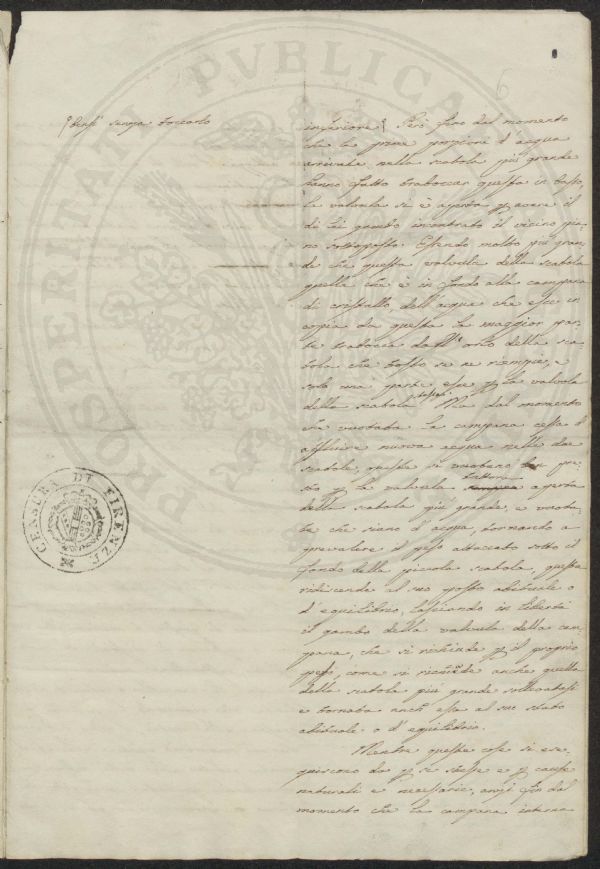 PROSPERITATI PVBLICAE
6
bensì senza toccarlo
inferiore. Però fino dal momento
che le prime porzioni d'acqua
arrivate nella scatola più grande
hanno fatto traboccar questa in basso,
la valvula si è aperta p avere il
di lei gambo incontrato il vicino pia-
no sottoposto. Essendo molto più gran-
de che questa valvula della scatola
quella che è in fondo alla campana
di cristallo, dell'acqua che esce in
copia da questa la maggior par-
te trabocca dall'orlo della sca-
tola che tosto se ne riempie, e
solo una parte esce p la valvola
della scatola stessa. Ma dal momento
che vuotata la campana cessa d
affluire nuova acqua nelle due
scatole, queste si vuotano ben pre-
sto p la valvula tuttora aperta
della scatola più grande, e vuota-
te che siano d'acqua, tornando a
prevalere il peso attaccato sotto il
fondo della piccola scatola, questa
ridiscende al suo posto abituale o
d'equilibrio, lasciando in libertà
il gambo della valvula della cam-
pana, che si richiude p il proprio
peso, come si richiude anche quella
della scatola più grande sollevatasi
e tornata anch'essa al suo stato
abituale o d'equilibrio.
Mentre queste cose si ese-
guiscono da p se stesse e p cause
naturali e necessarie, anzi fin dal
momento che la campana interna
CENSURA DI FIRENZE